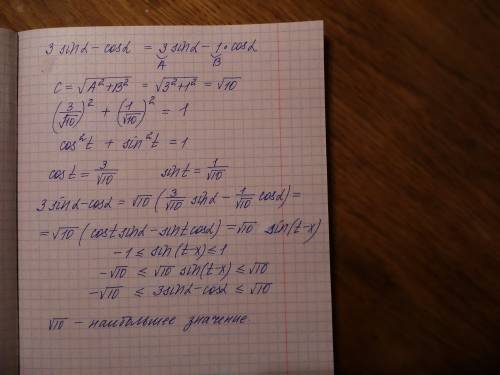 3 sinα - cosα = 3 sinα - 1·cosα
A B
C = √A²+B² = √3²+1² = √10
(3/√10)² + (1/√10)² = 1
cos²t + sin²t = 1
cos t = 3/√10 sin t = 1/√10
3 sinα - cosα = √10 (3/√10 sinα - 1/√10 cosα) =
= √10 (cost sinα - sint cosα) = √10 sin(t-x)
-1 ≤ sin(t-x) ≤ 1
-√10 ≤ √10 sin(t-x) ≤ √10
-√10 ≤ 3sinα - cosα ≤ √10
√10 - наибольшее значение